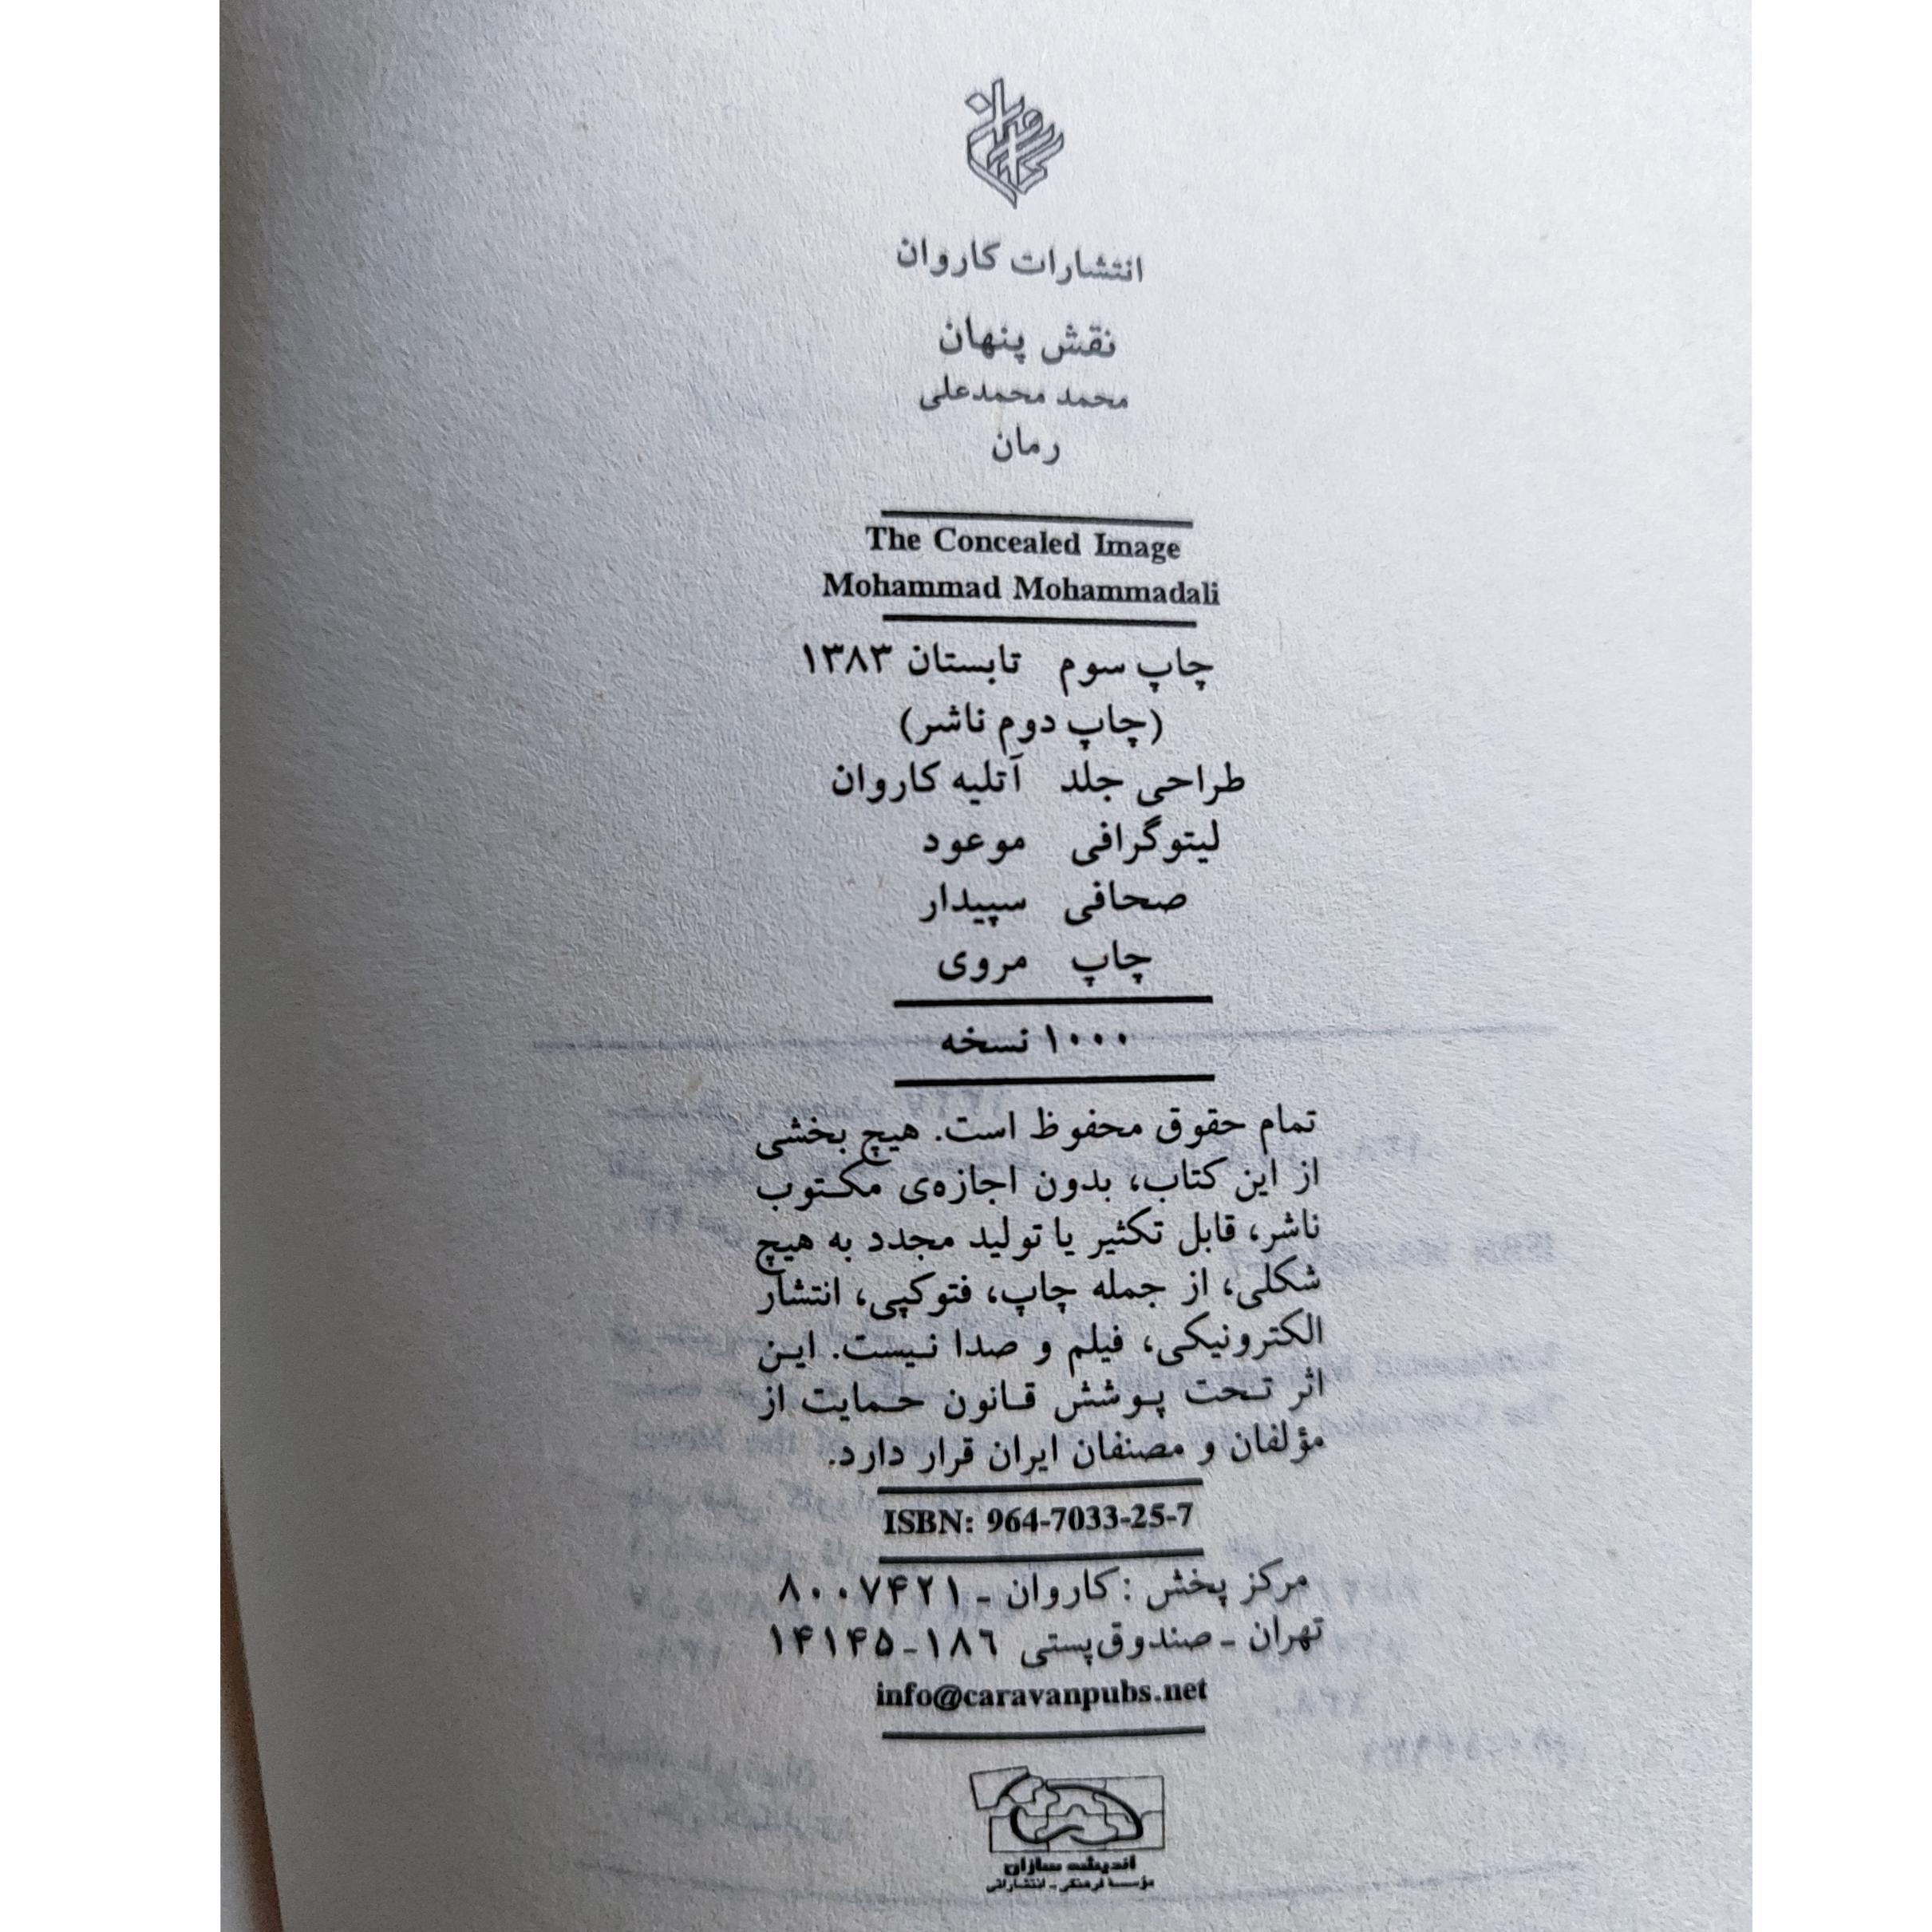 کاروان
انتشارات کاروان
نقش پنهان
محمد محمدعلی
رمان
The Concealed Image
Mohammad Mohammadali
چاپ سوم تابستان ۱۳۸۳
(چاپ دوم ناشر)
طراحی جلد آتلیه کاروان
لیتوگرافی موعود
صحافی سپیدار
چاپ مروی
۱۰۰۰ نسخه
تمام حقوق محفوظ است. هیچ بخشی
از این کتاب، بدون اجازه‌ی مکتوب
ناشر، قابل تکثیر یا تولید مجدد به هیچ
شکلی، از جمله چاپ، فتوکپی، انتشار
الکترونیکی، فیلم و صدا نیست. این
اثر تحت پوشش قانون حمایت از
مؤلفان و مصنفان ایران قرار دارد.
ISBN: 964-7033-25-7
مرکز پخش : کاروان - ۸۰۰۷۴۲۱
تهران - صندوق‌پستی ۱۸۶-۱۴۱۴۵
info@caravanpubs.net
اندیشه سازان
مؤسسه فرهنگی - انتشاراتی